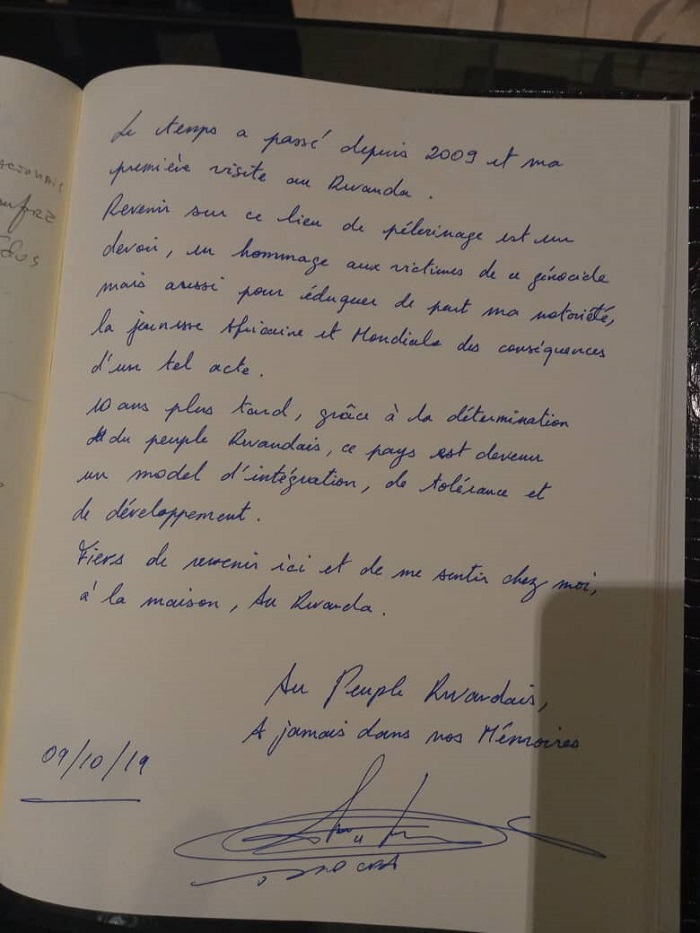 Le temps a passé depuis 2009 et ma
première visite au Rwanda.
Revenir sur ce lieu de pélerinage est un
devoir, un hommage aux victimes de ce génocide
mais aussi pour éduquer de part ma notoriété,
la jeunesse Africaine et Mondiale des conséquences
d'un tel acte.
10 ans plus tard, grâce à la détermination
du peuple Rwandais, ce pays est devenu
un model d'intégration, de tolérance et
de développement.
Fiers de revenir ici et de me sentir chez moi,
à la maison, Au Rwanda.
Au Peuple Rwandais,
A jamais dans nos Mémoires
09/10/19